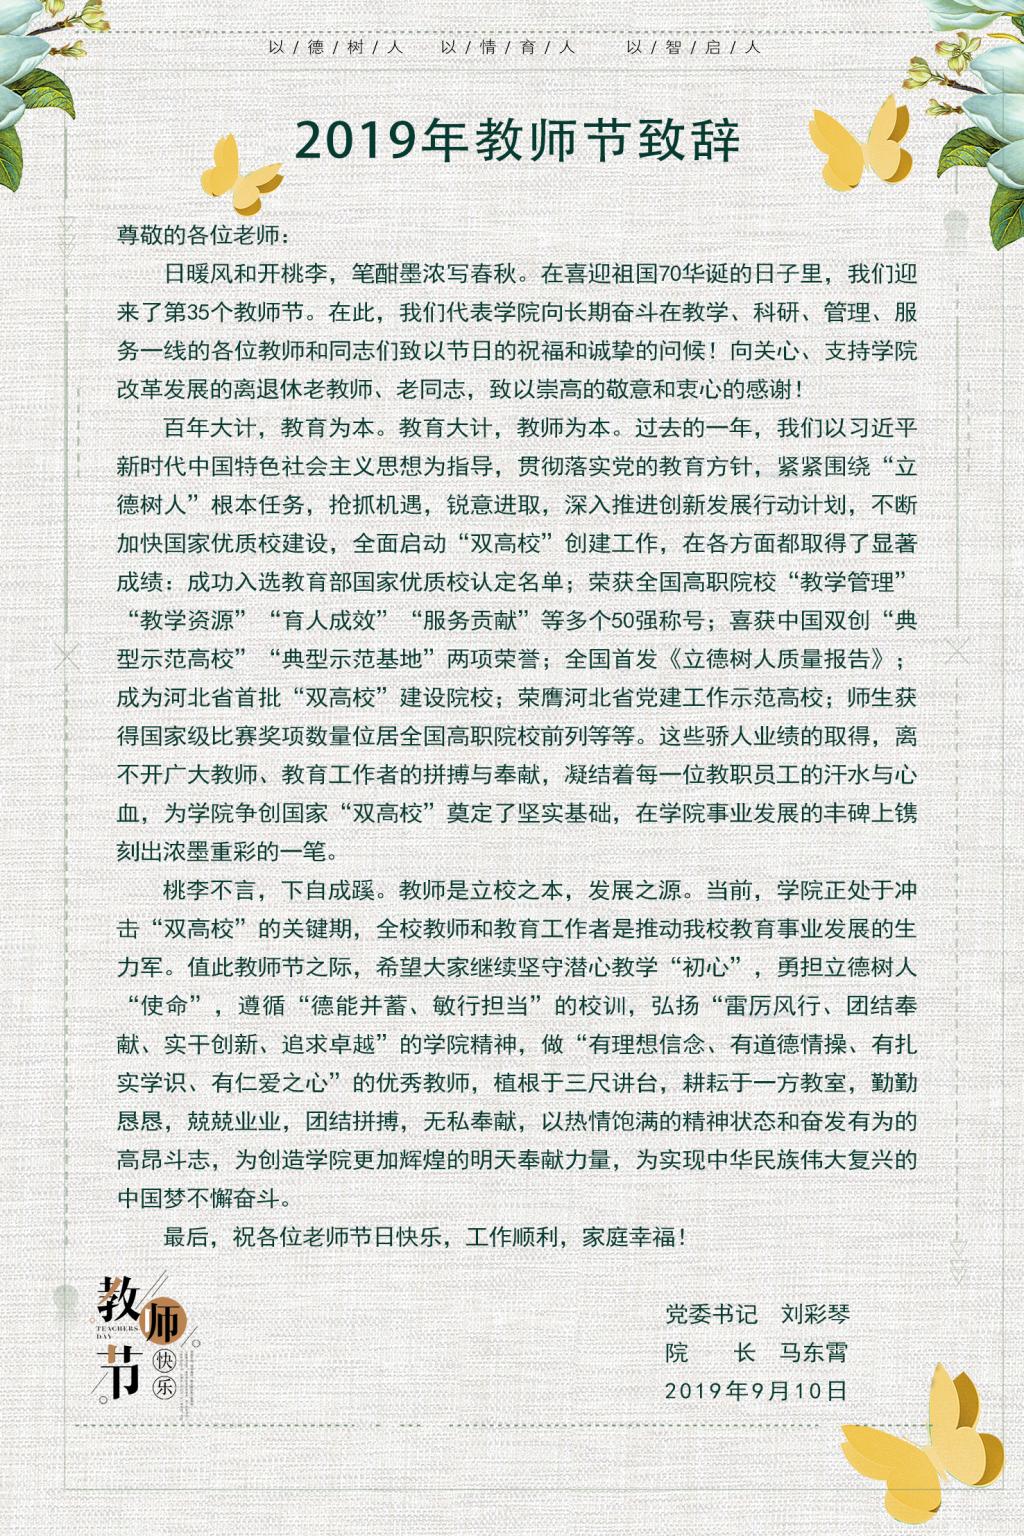 以/德/树/人 以/情/育/人 以/智/启/人
2019年教师节致辞
尊敬的各位老师：
日暖风和开桃李，笔酣墨浓写春秋。在喜迎祖国70华诞的日子里，我们迎
来了第35个教师节。在此，我们代表学院向长期奋斗在教学、科研、管理、服
务一线的各位教师和同志们致以节日的祝福和诚挚的问候！向关心、支持学院
改革发展的离退休老教师、老同志，致以崇高的敬意和衷心的感谢！
百年大计，教育为本。教育大计，教师为本。过去的一年，我们以习近平
新时代中国特色社会主义思想为指导，贯彻落实党的教育方针，紧紧围绕“立
德树人”根本任务，抢抓机遇，锐意进取，深入推进创新发展行动计划，不断
加快国家优质校建设，全面启动“双高校”创建工作，在各方面都取得了显著
成绩：成功入选教育部国家优质校认定名单；荣获全国高职院校“教学管理”
“教学资源”“育人成效”“服务贡献”等多个50强称号；喜获中国双创“典
型示范高校”“典型示范基地”两项荣誉；全国首发《立德树人质量报告》；
成为河北省首批“双高校”建设院校；荣膺河北省党建工作示范高校；师生获
得国家级比赛奖项数量位居全国高职院校前列等等。这些骄人业绩的取得，离
不开广大教师、教育工作者的拼搏与奉献，凝结着每一位教职员工的汗水与心
血，为学院争创国家“双高校”奠定了坚实基础，在学院事业发展的丰碑上镌
刻出浓墨重彩的一笔。
桃李不言，下自成蹊。教师是立校之本，发展之源。当前，学院正处于冲
击“双高校”的关键期，全校教师和教育工作者是推动我校教育事业发展的生
力军。值此教师节之际，希望大家继续坚守潜心教学“初心”，勇担立德树人
“使命”，遵循“德能并蓄、敏行担当”的校训，弘扬“雷厉风行、团结奉
献、实干创新、追求卓越”的学院精神，做“有理想信念、有道德情操、有扎
实学识、有仁爱之心”的优秀教师，植根于三尺讲台，耕耘于一方教室，勤勤
恳恳，兢兢业业，团结拼搏，无私奉献，以热情饱满的精神状态和奋发有为的
高昂斗志，为创造学院更加辉煌的明天奉献力量，为实现中华民族伟大复兴的
中国梦不懈奋斗。
最后，祝各位老师节日快乐，工作顺利，家庭幸福！
教师节
TEACHERS
DAY
快乐
党委书记 刘彩琴
院 长 马东霄
2019年9月10日